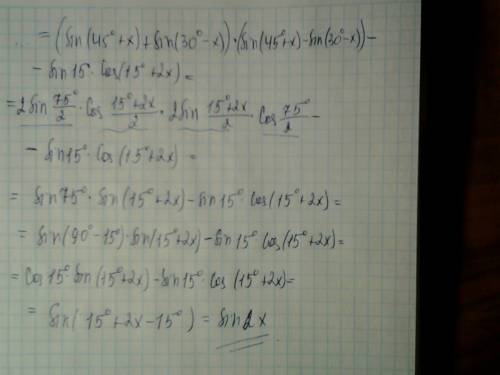 ... = (sin(45°+x)+sin(30°-x))·(sin(45°+x)-sin(30°-x))-
- sin15°·cos(15°+2x)=
=2sin 75°/2 · cos (15°+2x)/2 · 2sin (15°+2x)/2 · cos 75°/2 -
- sin15°·cos(15°+2x)=
= sin75°·sin(15°+2x)-sin15°·cos(15°+2x)=
= sin(90°-15°)·sin(15°+2x)-sin15°cos(15°+2x)=
= cos15°·sin(15°+2x)-sin15°·cos(15°+2x)=
= sin(15°+2x-15°)=sin2x